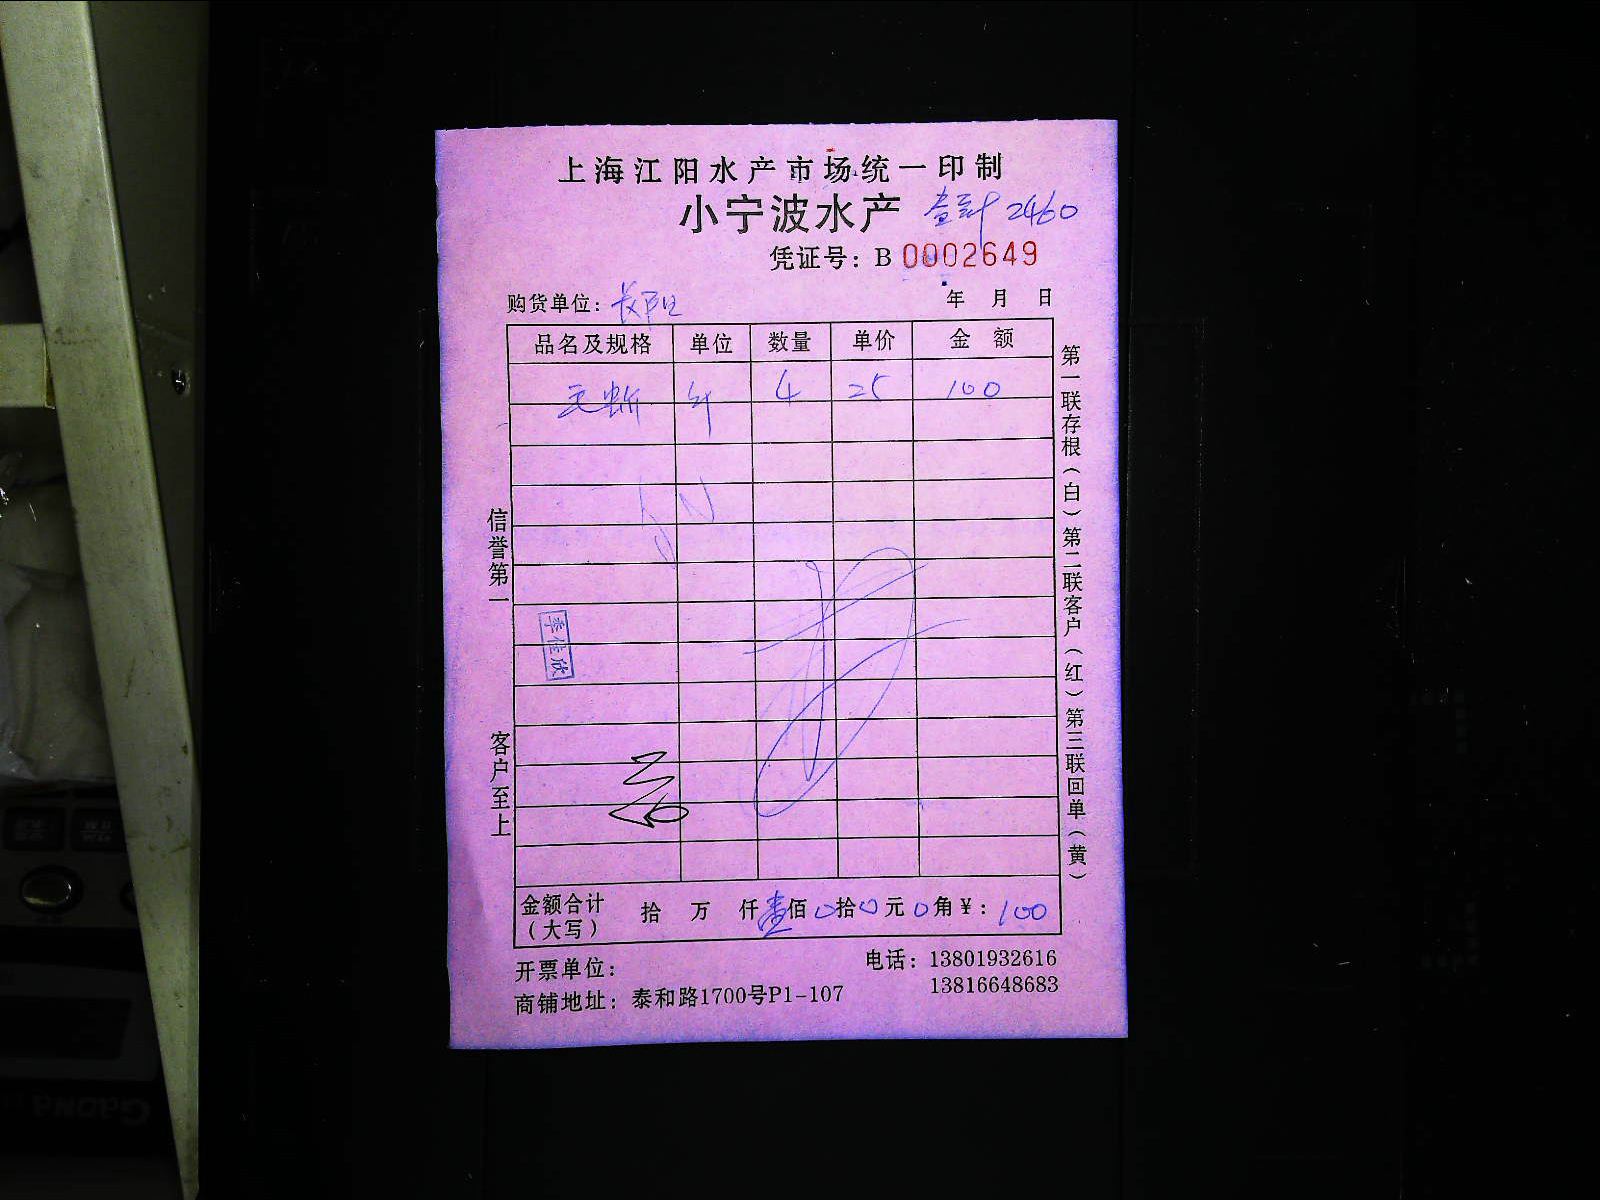 上海江阳水产市场统一印制
小宁波水产 2460
凭证号：B 0002649
购货单位：
年 月 日
品名及规格 单位 数量 单价 金 额
斤 4 25 100
金额合计（大写） 拾 万 仟壹佰0拾0元0角¥：100
开票单位：
电话：13801932616
13816648683
商铺地址：泰和路1700号P1-107
信誉第一
客户至上
第一联存根（白）第二联客户（红）第三联回单（黄）
季佳欣